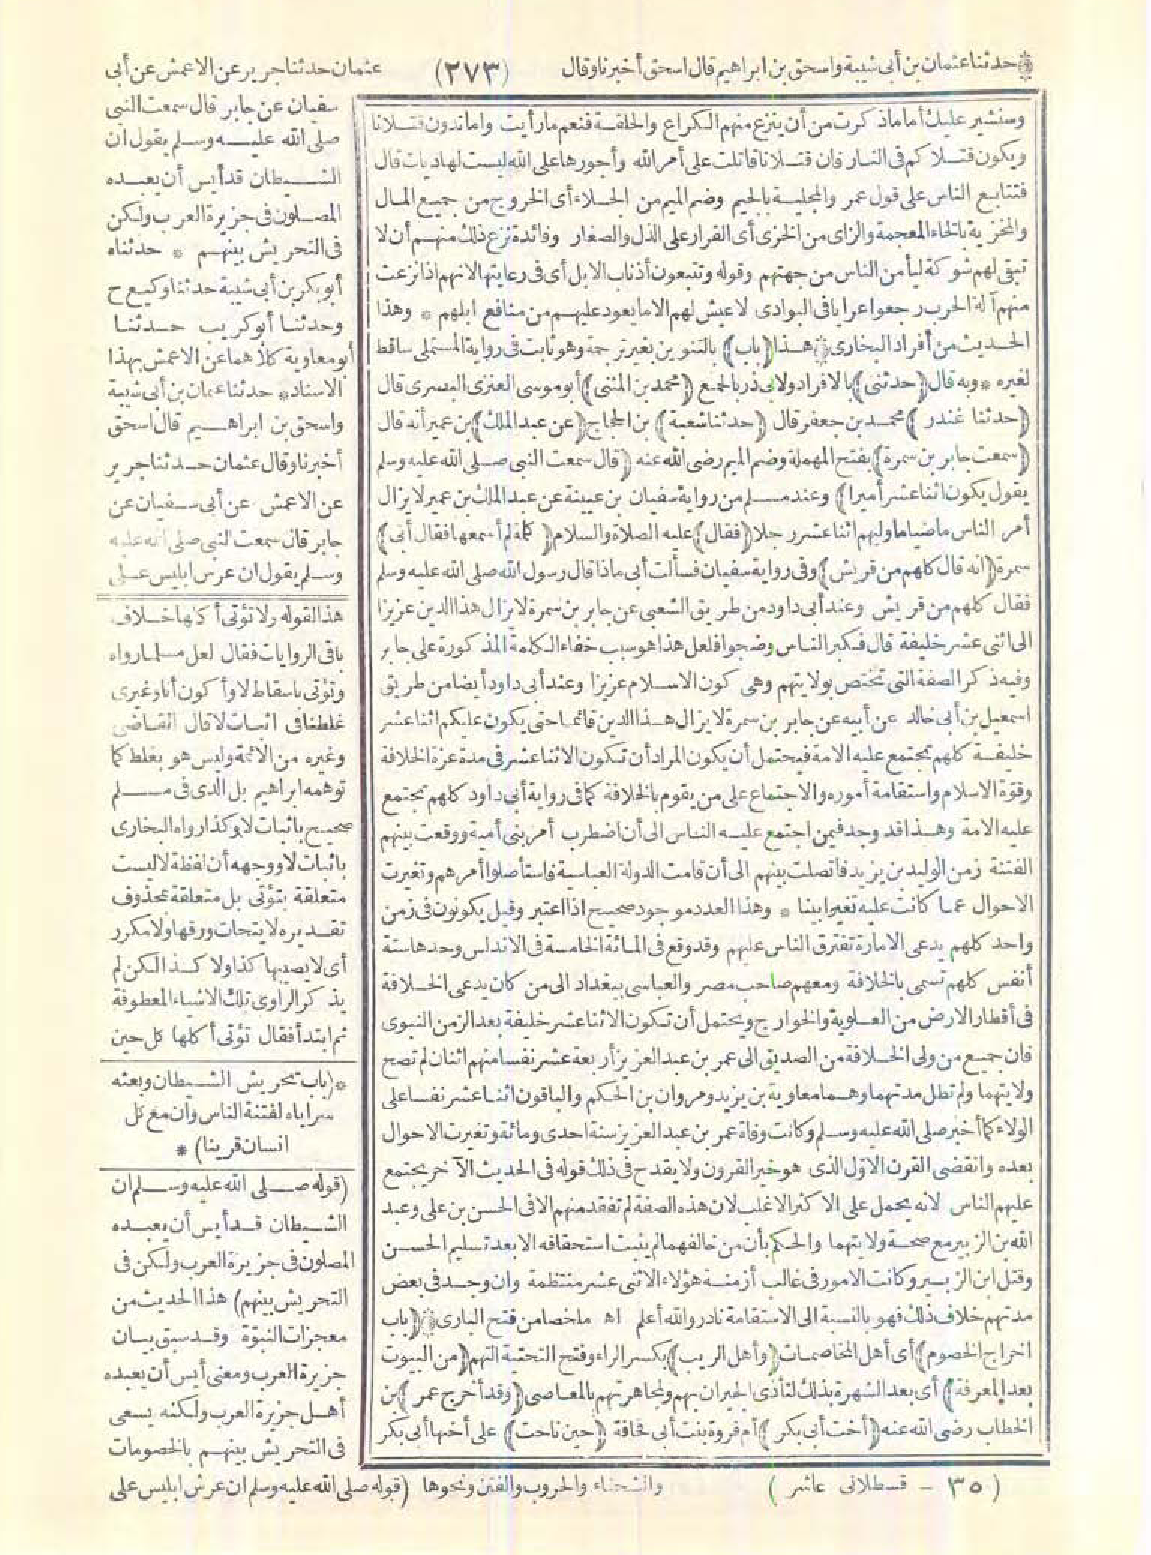 * حدثنا عثمان بن أبي شيبة واسحق بن ابراهيم قال اسحق أخبرنا وقال
(٢٧٣)
عثمان حدثنا جرير عن الاعمش عن أبي
سفيان عن جابر قال سمعت النبي
صلى الله عليه وسلم يقول ان
الشيطان قد أيس أن يعبده
المصلون في جزيرة العرب ولكن
في التحريش بينهم * حدثناه
أبو بكر بن أبي شيبة حدثنا وكيع ح
وحدثنا أبو كريب حدثنا
أبو معاوية كلاهما عن الاعمش بهذا
الاسناد * حدثنا عثمان بن أبي شيبة
واسحق بن ابراهيم قال اسحق
أخبرنا وقال عثمان حدثنا جرير
عن الاعمش عن أبي سفيان عن
جابر قال سمعت النبي صلى الله عليه
وسلم يقول ان عرش ابليس على
هذا القوله ولا تؤتى أكلها خلاف
باقي الروايات فقال لعل مسلما رواه
وتؤتى باسقاط لا وأكون أنا وغيرى
غلطنا في اثبات لا قال القاضي
وغيره من الائمة وليس هو بغلط كما
توهمه ابراهيم بل الذى في مسلم
صحيح باثبات لا وكذا رواه البخارى
باثبات لا ووجهه أن لفظة لا ليست
متعلقة بتؤتى بل متعلقة بمحذوف
تقديره لا يتحات ورقها ولا مكرر
أى لا يصيبها كذا ولا كذا لكن لم
يذكر الراوى تلك الاشياء المعطوفة
ثم ابتدأ فقال تؤتى أكلها كل حين
* (باب تحريش الشيطان وبعثه
سراياه لفتنة الناس وان مع كل
انسان قرينا) *
(قوله صلى الله عليه وسلم ان
الشيطان قد أيس أن يعبده
المصلون في جزيرة العرب ولكن في
التحريش بينهم) هذا الحديث من
معجزات النبوّة وقد سبق بيان
جزيرة العرب ومعنى أيس أن يعبده
أهل جزيرة العرب ولكنه يسعى
في التحريش بينهم بالخصومات
والشحناء والحروب والفتن ونحوها (قوله صلى الله عليه وسلم ان عرش ابليس على
وسنشير عليك أما ما ذكرت من أن ينزع منهم الكراع والحلقة فنعم ما رأيت وأما تدون قتلانا
ويكون قتلاكم في النار فان قتلانا قاتلت على أمر الله وأجورها على الله ليست لها ديات قال
فتتابع الناس على قول عمر والمجلية بالجيم وضم الميم من الجلاء أى الخروج من جميع المال
والمخزية بالخاء المعجمة والزاى من الخزى أى القرار على الذل والصغار وفائدة نزع ذلك منهم أن لا
تبقى لهم شوكة ليأمن الناس من جهتهم وقوله وتتبعون أذناب الابل أى في رعايتها لانهم اذا نزعت
منهم آلة الحرب رجعوا عرابا في البوادى لا عيش لهم الا ما يعود عليهم من منافع ابلهم * وهذا
الحديث من أفراد البخارى * هذا (باب) بالتنوين بغير ترجمة وهو ثابت في رواية المستملى ساقط
لغيره * وبه قال (حدثني) بالافراد ولابي ذر بالجمع (محمد بن المثنى) أبو موسى العنزى البصرى قال
(حدثنا غندر) محمد بن جعفر قال (حدثنا شعبة) بن الحجاج (عن عبد الملك) بن عمير أنه قال
(سمعت جابر بن سمرة) بفتح المهملة وضم الميم رضى الله عنه (قال سمعت النبي صلى الله عليه وسلم
يقول يكون اثنا عشر أميرا) وعند مسلم من رواية سفيان بن عيينة عن عبد الملك بن عمير لا يزال
أمر الناس ماضيا ما وليهم اثنا عشر رجلا (فقال) عليه الصلاة والسلام (كلمة لم أسمعها فقال أبي)
سمرة (انه قال كلهم من قريش) وفي رواية سفيان فسألت أبي ماذا قال رسول الله صلى الله عليه وسلم
فقال كلهم من قريش وعند أبي داود من طريق الشعبي عن جابر بن سمرة لا يزال هذا الدين عزيزا
الى اثني عشر خليفة قال فكبر الناس وضجوا فلعل هذا هو سبب خفاء الكلمة المذكورة على جابر
وفيه ذكر الصفة التي تختص بولايتهم وهى كون الاسلام عزيزا وعند أبي داود أيضا من طريق
اسمعيل بن أبي خالد عن أبيه عن جابر بن سمرة لا يزال هذا الدين قائما حتى يكون عليكم اثنا عشر
خليفة كلهم تجتمع عليه الامة فيحتمل أن يكون المراد أن تكون الاثنا عشر في مدة عزة الخلافة
وقوة الاسلام واستقامة أموره والاجتماع على من يقوم بالخلافة كما في رواية أبي داود كلهم تجتمع
عليه الامة وهذا قد وجد فيمن اجتمع عليه الناس الى أن اضطرب أمر بني أمية ووقعت بينهم
الفتنة زمن الوليد بن يزيد فاتصلت بينهم الى أن قامت الدولة العباسية فاستأصلوا أمرهم وتغيرت
الاحوال عما كانت عليه تغيرا بينا * وهذا العدد موجود صحيح اذا اعتبر وقيل يكونون في زمن
واحد كلهم يدعى الامارة تفترق الناس عليهم وقد وقع في المائة الخامسة في الاندلس وحدها ستة
أنفس كلهم تسمى بالخلافة ومعهم صاحب مصر والعباسى ببغداد الى من كان يدعى الخلافة
في أقطار الارض من العلوية والخوارج ويحتمل أن تكون الاثنا عشر خليفة بعد الزمن النبوى
فان جميع من ولى الخلافة من الصديق الى عمر بن عبد العزيز أربعة عشر نفسا منهم اثنان لم تصح
ولايتهما ولم تطل مدتهما وهما معاوية بن يزيد ومروان بن الحكم والباقون اثنا عشر نفسا على
الولاء كما أخبر صلى الله عليه وسلم وكانت وفاة عمر بن عبد العزيز سنة احدى ومائة وتغيرت الاحوال
بعده وانقضى القرن الاوّل الذى هو خير القرون ولا يقدح في ذلك قوله في الحديث الآخر يجتمع
عليهم الناس لانه يحمل على الاكثر الاغلب لان هذه الصفة لم تفقد منهم الا في الحسن بن على وعبد
الله بن الزبير مع صحة ولايتهما والحكم بأن من خالفهما لم يثبت استحقاقه الا بعد تسليم الحسن
وقتل ابن الزبير وكانت الامور في غالب أزمنة هؤلاء الاثني عشر منتظمة وان وجد في بعض
مدتهم خلاف ذلك فهو بالنسبة الى الاستقامة نادر والله أعلم اه ملخصا من فتح البارى * (باب
اخراج الخصوم) أى أهل المخاصمات (وأهل الريب) بكسر الراء وفتح التحتية التهم (من البيوت
بعد المعرفة) أى بعد الشهرة بذلك لتأذى الجيران بهم ولمجاهرتهم بالمعاصى (وقد أخرج عمر) بن
الخطاب رضى الله عنه (أخت أبي بكر) أم فروة بنت أبي قحافة (حين ناحت) على أخيها أبي بكر
(٣٥ - قسطلاني عاشر)